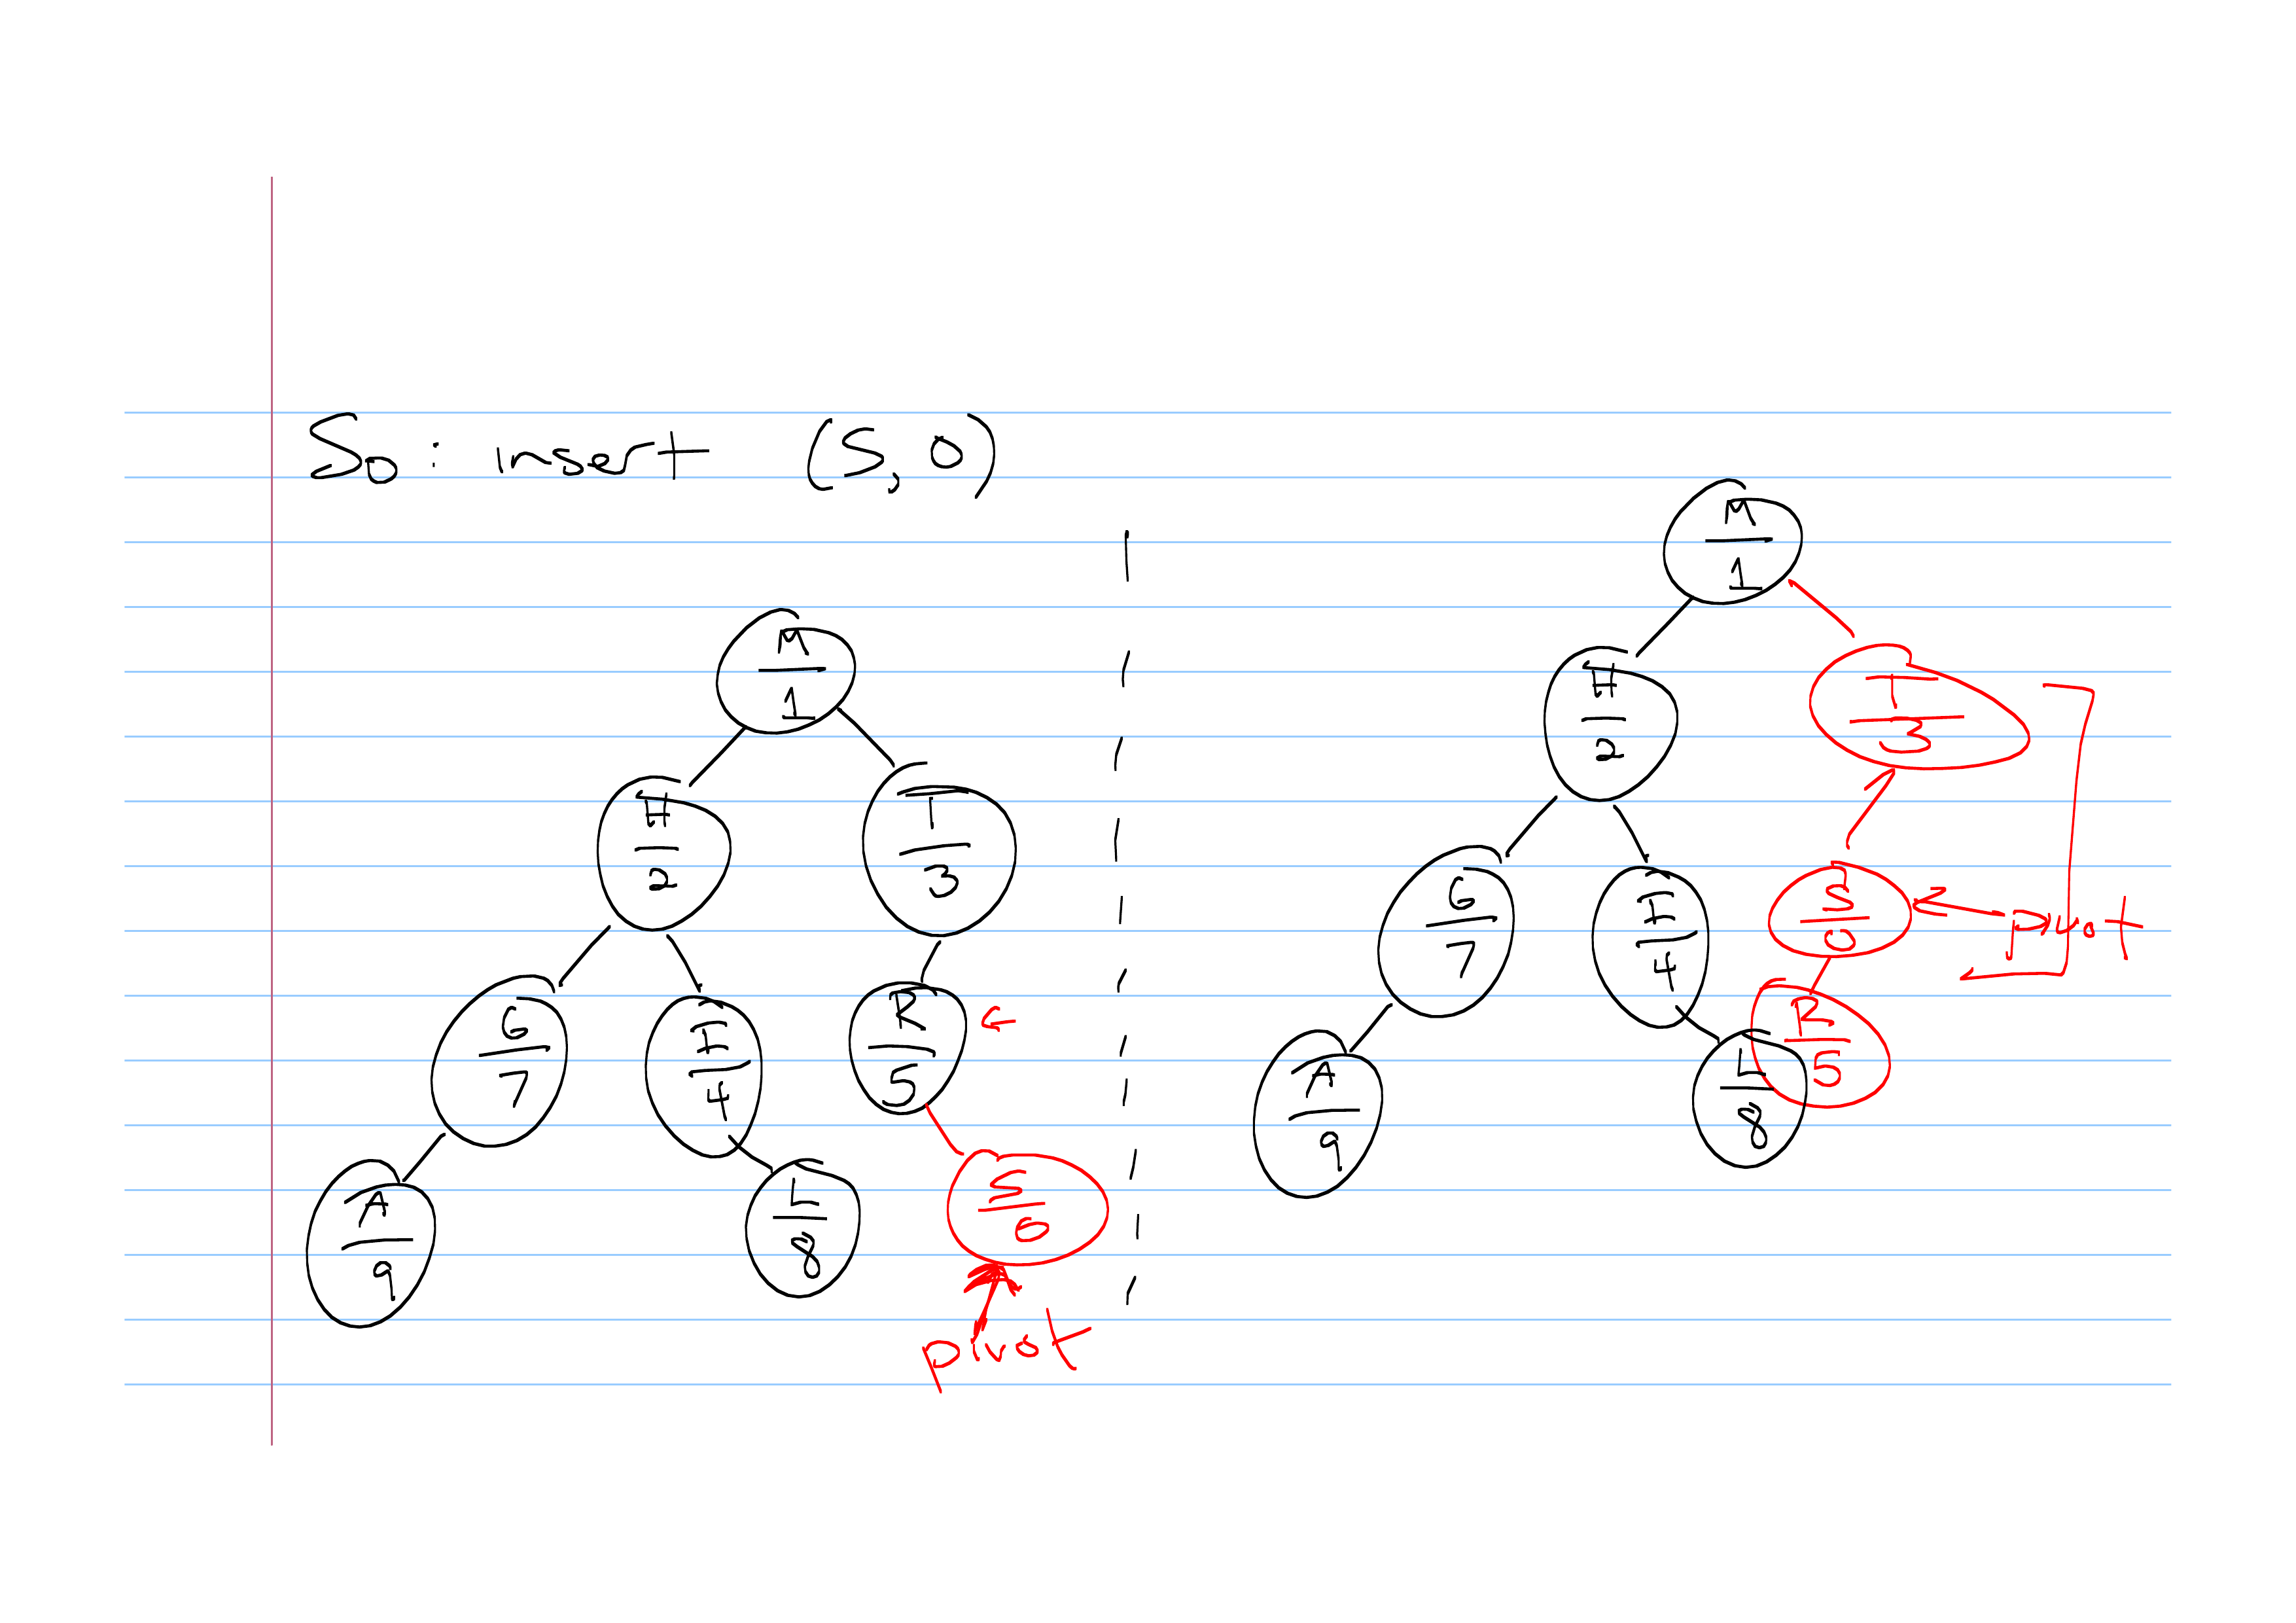 So: insert (S, 0)
M
1
H
2
T
3
G
7
I
4
R
5
A
9
L
8
S
0
pivot
M
1
H
2
T
3
G
7
I
4
S
0
pivot
R
5
A
9
L
8